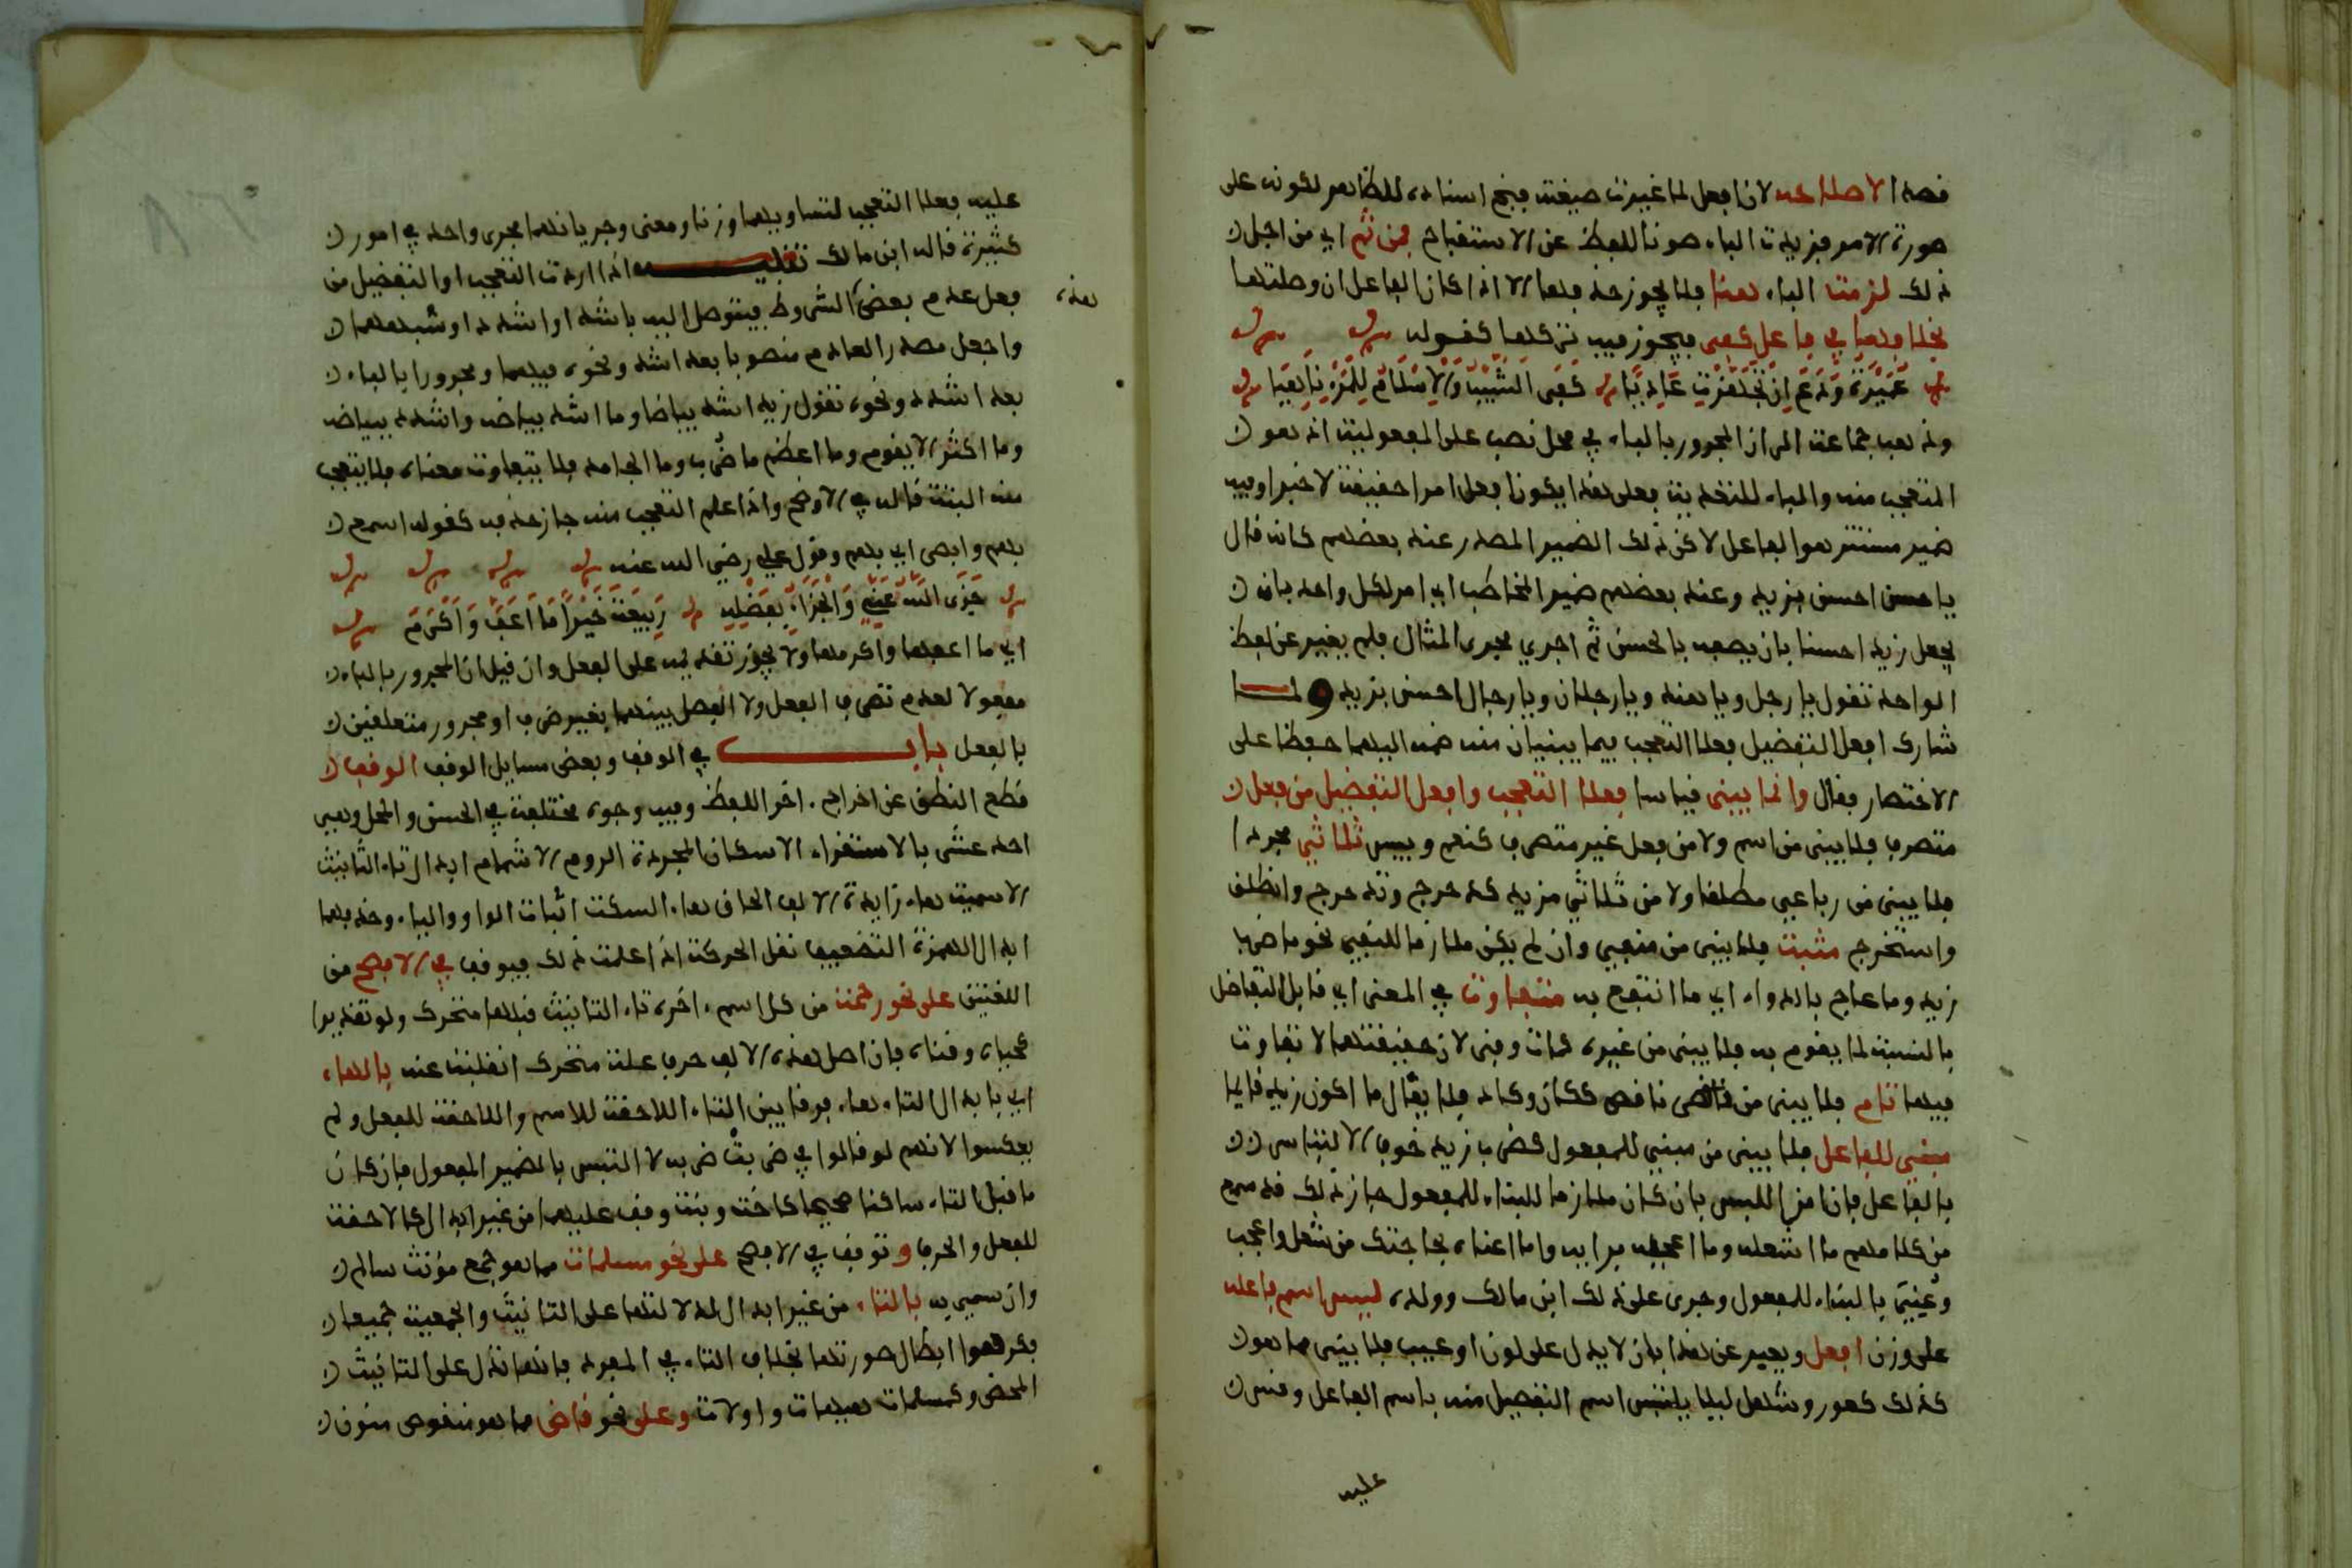 فصد الاصلاحه لان افعل لما غيرت صيغته فبح اسناده للظاهر لكونه على
صورة الامر فزيدت الباء صونا للفظ عن الاستقباح فمن ثم اي من اجل
ذلك لزمت الباء هنا فلا يجوز حذفها الا اذا كان الفاعل ان وصلتها
بخلافها في فاعل كفى فيجوز فيه تركها كقوله
عميرة ودع ان تجهزت غاديا كفى الشيب والاسلام للمرء ناهيا
وذهب جماعة الى ان المجرور بالباء في محل نصب على المفعولية اذ هو
المتعجب منه والباء للتعدية فعلى هذا يكون افعل امرا حقيقة لا خبرا وفيه
ضمير مستتر هو الفاعل لاكن ذلك الضمير المصدر عند بعضهم كانه قال
يا حسن احسن بزيد وعند بعضهم ضمير المخاطب اي امر لكل واحد بان
يجعل زيد احسنا بان يصفه بالحسن ثم اجري مجرى المثال فلم يغير عن لفظ
الواحد تقول يا رجل ويا هند ويا رجلان ويا رجال احسن بزيد ولما
شارك افعل التفضيل فعلا التعجب فيما يبنيان منه ضمه اليهما حفظا على
الاختصار فقال وانما يبنى قياسا فعلا التعجب وافعل التفضيل من فعل
متصرف فلا يبنى من اسم ولا من فعل غير متصرف كنعم وبيس ثلاثي مجردا
فلا يبنى من رباعي مطلقا ولا من ثلاثي مزيد كدحرج وتدحرج وانطلق
واستخرج مثبت فلا يبنى من منفي وان لم يكن ملازما للنفي نحو ما ضرب
زيد وما عاج بالدواء اي ما انتفع به متفاوت في المعنى اي قابل التفاضل
بالنسبة لما يقوم به فلا يبنى من غيره كمات وفنى لان حقيقتهما لا تفاوت
فيها تام فلا يبنى من ناقص ككان وكاد فلا يقال ما اكون زيد قايما
مبني للفاعل فلا يبنى من مبني للمفعول كضرب زيد خوف الالتباس
بالفاعل فان امن اللبس بان كان ملازما للبناء للمفعول جاز ذلك قد سمع
من كلامهم ما اشغله وما اعجبه برايه واما اعناه بحاجتك من شغل واعجب
وعُنِيَ بالبناء للمفعول وجرى على ذلك ابن مالك وولده ليس اسم فاعله
على وزن افعل ويعبر عن هذا بان لا يدل على لون او عيب فلا يبنى مما هو
كذلك كعور وشهل ليلا يلتبس اسم التفضيل منه باسم الفاعل وقس
عليه
عليه فعلا التعجب لتساويهما وزنا ومعنى وجريانهما مجرى واحد في امور
كثيرة قاله ابن مالك تنبيه اذا اردت التعجب او التفضيل من
فعل عدم بعض الشروط فيتوصل اليه باشد او اشدد او شبههما
هذه
واجعل مصدر العادم منصوبا بعد اشد ونحوه فيهما ومجرورا بالباء
بعد اشدد ونحوه تقول زيد اشد بياضا وما اشد بياضه واشدد ببياضه
وما اكثر الا يقوم وما اعظم ما ضُرب وما الجامد فلا يتفاوت معناه فلا يتعجب
منه البتة قاله في الاوضح واذا علم التعجب منه جاز حذفه كقوله اسمع
بهم وابصر اي بهم وقول علي رضي الله عنه
جزى الله عني والجزاء بفضله ربيعة خيرا ما اعف واكرم
اي ما اعفها واكرمها ولا يجوز تقديمه على الفعل وان قيل ان المجرور بالباء
مفعولا لعدم تصرف الفعل ولا الفصل بينهما بغير ظرف او مجرور متعلقين
بالفعل باب في الوقف وبعض مسايل الوقف الوقف
قطع النطق عن اخراج اخر اللفظ وفيه وجوه مختلفة في الحسن والمحل وهي
احد عشر بالاستقراء الاسكان المجردة الروم الاشمام ابدال تاء التانيث
الاسمية هاء زايدة الالف الحاق هاء السكت اثبات الواو والياء وحذفهما
ابدال الهمزة التضعيف نقل الحركة اذا علمت ذلك فيوقف في الافصح من
اللغتين على نحو رحمة من كل اسم اخره تاء التانيث قبلها متحرك ولو تقديرا
كحياة وفتاة فان اصل هذه الالف حرف علة متحرك انقلبت عنه بالهاء
اي بابدال التاء هاء فرقا بين التاء اللاحقة للاسم واللاحقة للفعل ولم
يعكسوا لانهم لو قالوا في ضربتْ ضربه لا التبس بالضمير المفعول فان كان
ما قبل التاء ساكنا صحيحا كاخت وبنت وقف عليهما من غير ابدال كاللاحقة
للفعل والحرف وتوقف في الافصح على نحو مسلمات مما هو جمع مؤنث سالم
وان سمي به بالتاء من غير ابدال لدلالتها على التانيث والجمعية جميعا
فكرهوا ابطال صورتها بخلاف التاء في المفرد فانها تدل على التانيث
المحض وكمسلمات هيهات واولات وعلى نحو قاض مما هو منقوص منون